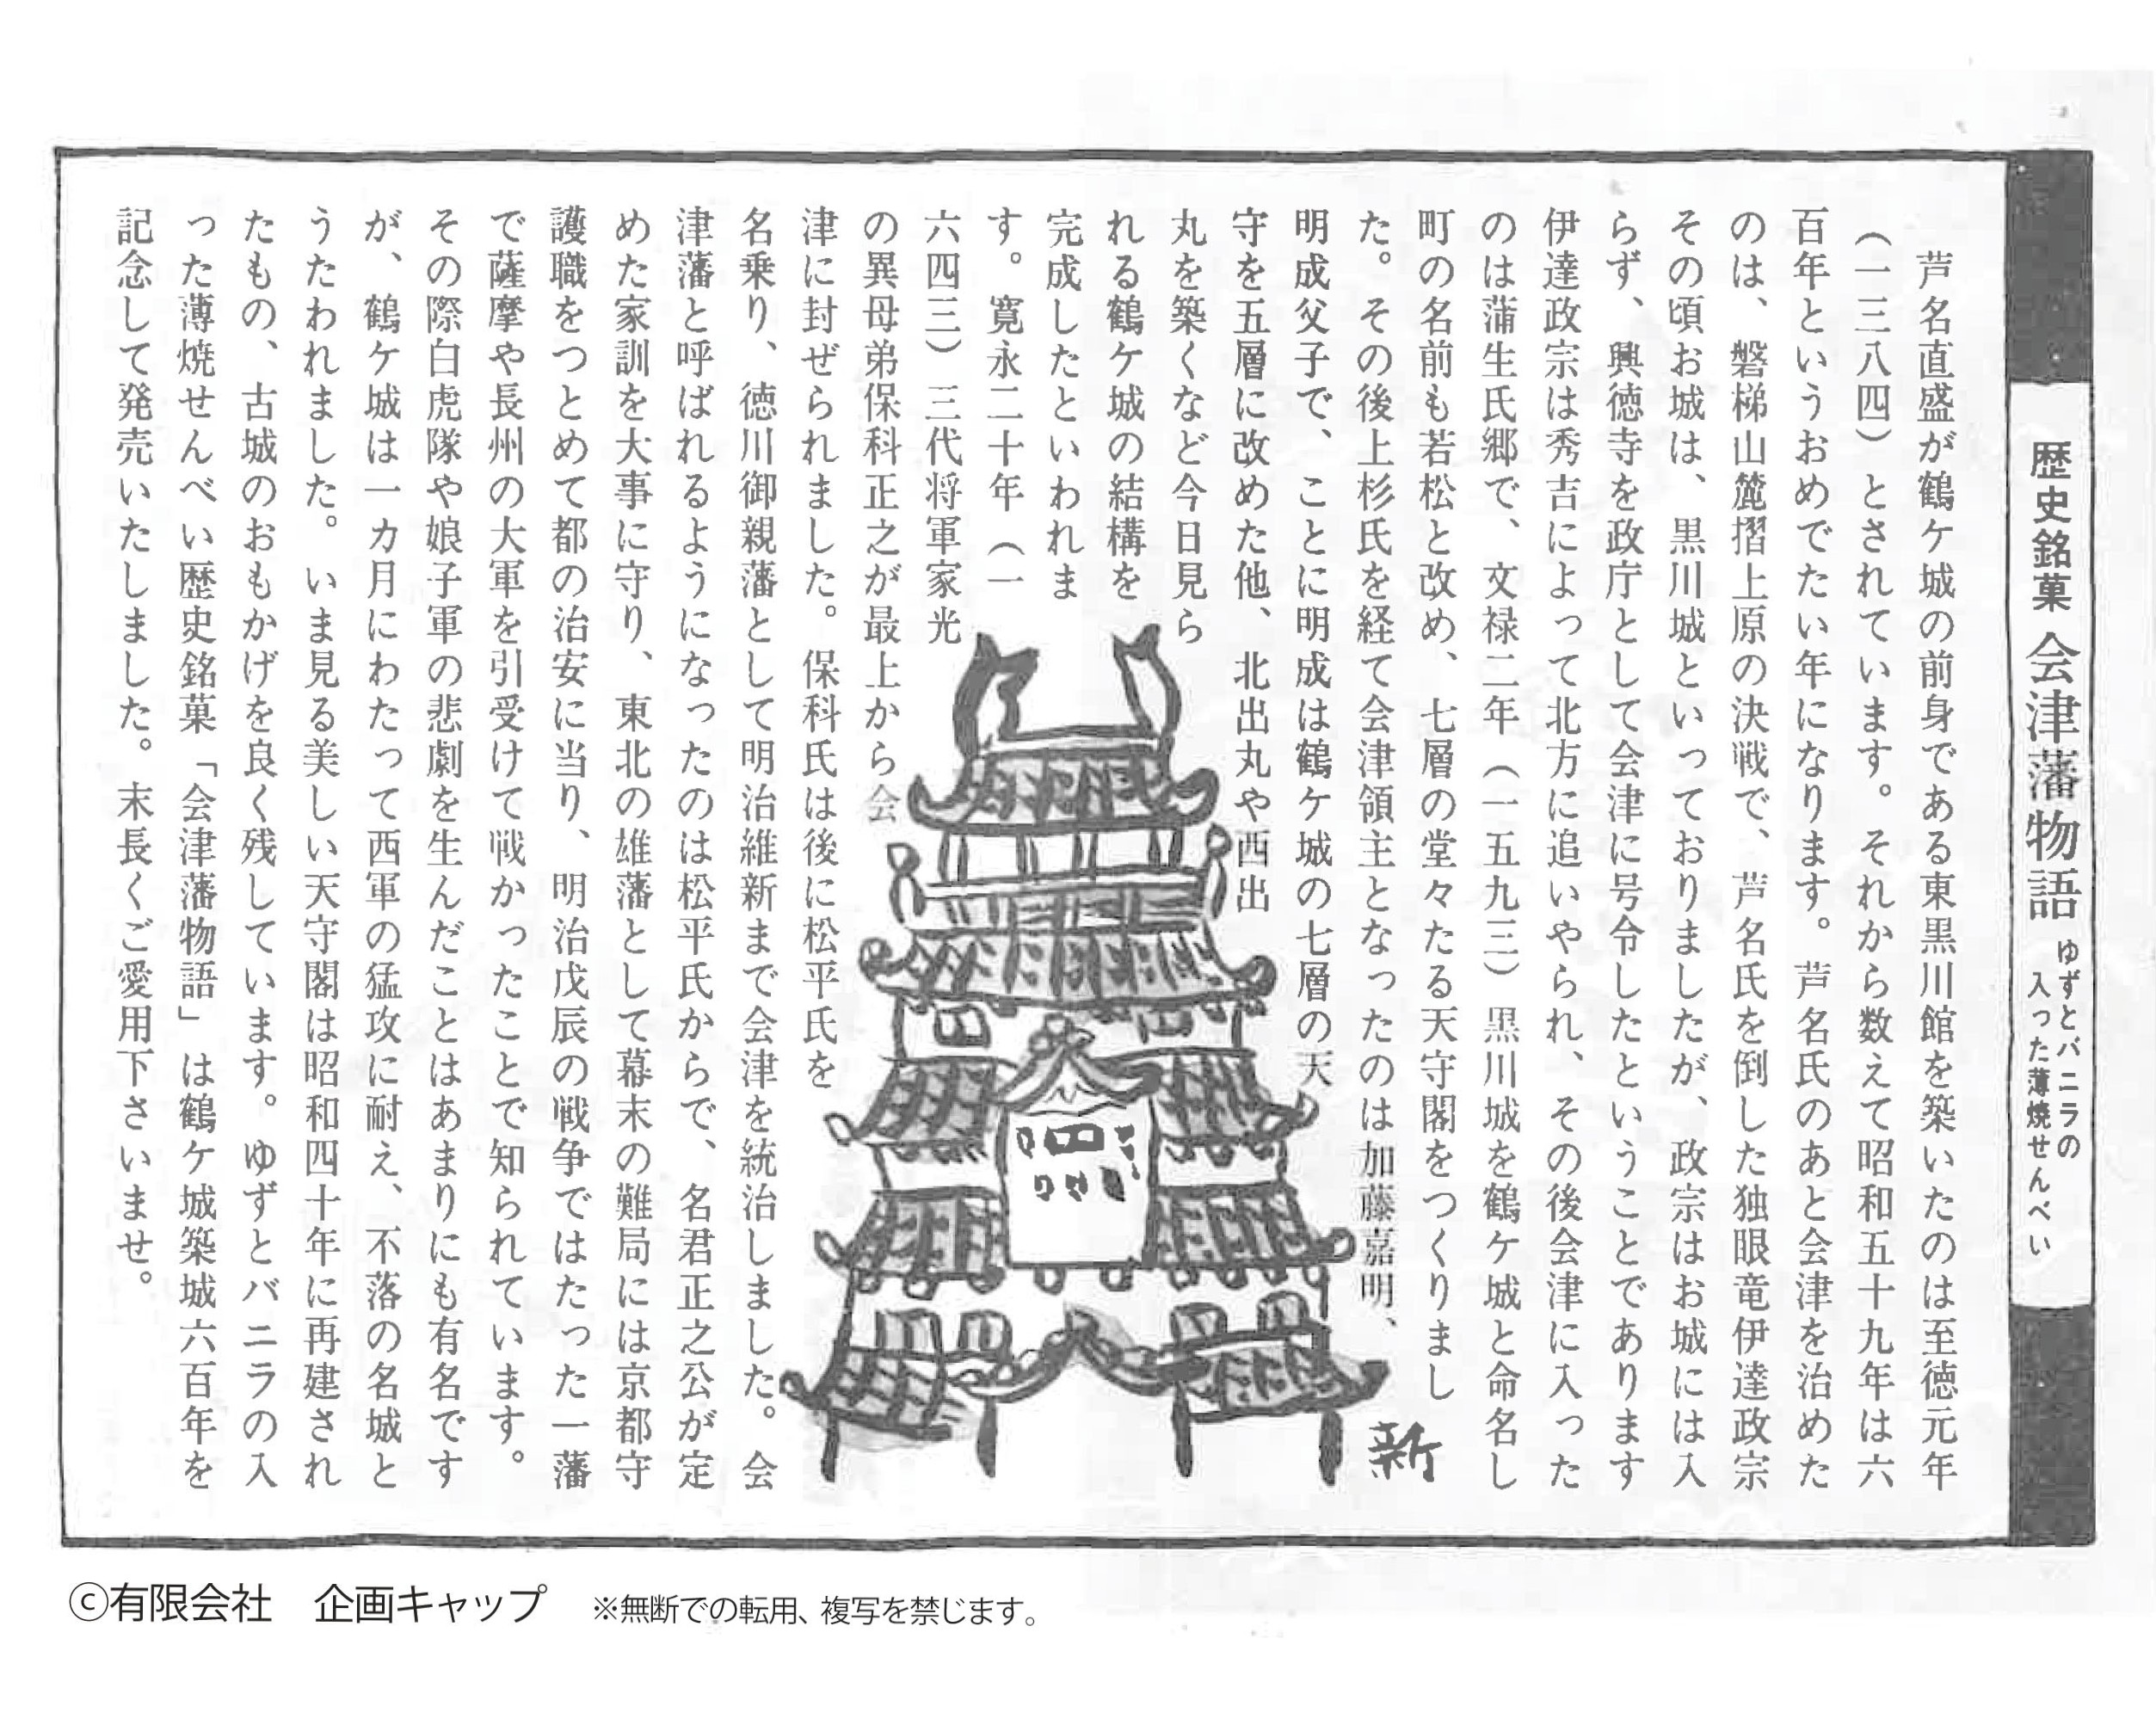 歴史銘菓 会津藩物語
ゆずとバニラの
入った薄焼せんべい
芦名直盛が鶴ケ城の前身である東黒川館を築いたのは至徳元年
（一三八四）とされています。それから数えて昭和五十九年は六
百年というおめでたい年になります。芦名氏のあと会津を治めた
のは、磐梯山麓摺上原の決戦で、芦名氏を倒した独眼竜伊達政宗
その頃お城は、黒川城といっておりましたが、政宗はお城には入
らず、興徳寺を政庁として会津に号令したということであります
伊達政宗は秀吉によって北方に追いやられ、その後会津に入った
のは蒲生氏郷で、文禄二年（一五九三）黒川城を鶴ケ城と命名し
町の名前も若松と改め、七層の堂々たる天守閣をつくりまし
た。その後上杉氏を経て会津領主となったのは加藤嘉明、
明成父子で、ことに明成は鶴ケ城の七層の天
守を五層に改めた他、北出丸や西出
丸を築くなど今日見ら
れる鶴ケ城の結構を
完成したといわれま
す。寛永二十年（一
六四三）三代将軍家光
の異母弟保科正之が最上から会
津に封ぜられました。保科氏は後に松平氏を
名乗り、徳川御親藩として明治維新まで会津を統治しました。会
津藩と呼ばれるようになったのは松平氏からで、名君正之公が定
めた家訓を大事に守り、東北の雄藩として幕末の難局には京都守
護職をつとめて都の治安に当り、明治戊辰の戦争ではたった一藩
で薩摩や長州の大軍を引受けて戦かったことで知られています。
その際白虎隊や娘子軍の悲劇を生んだことはあまりにも有名です
が、鶴ケ城は一カ月にわたって西軍の猛攻に耐え、不落の名城と
うたわれました。いま見る美しい天守閣は昭和四十年に再建され
たもの、古城のおもかげを良く残しています。ゆずとバニラの入
った薄焼せんべい歴史銘菓「会津藩物語」は鶴ケ城築城六百年を
記念して発売いたしました。末長くご愛用下さいませ。
新
ⓒ有限会社　企画キャップ　※無断での転用、複写を禁じます。